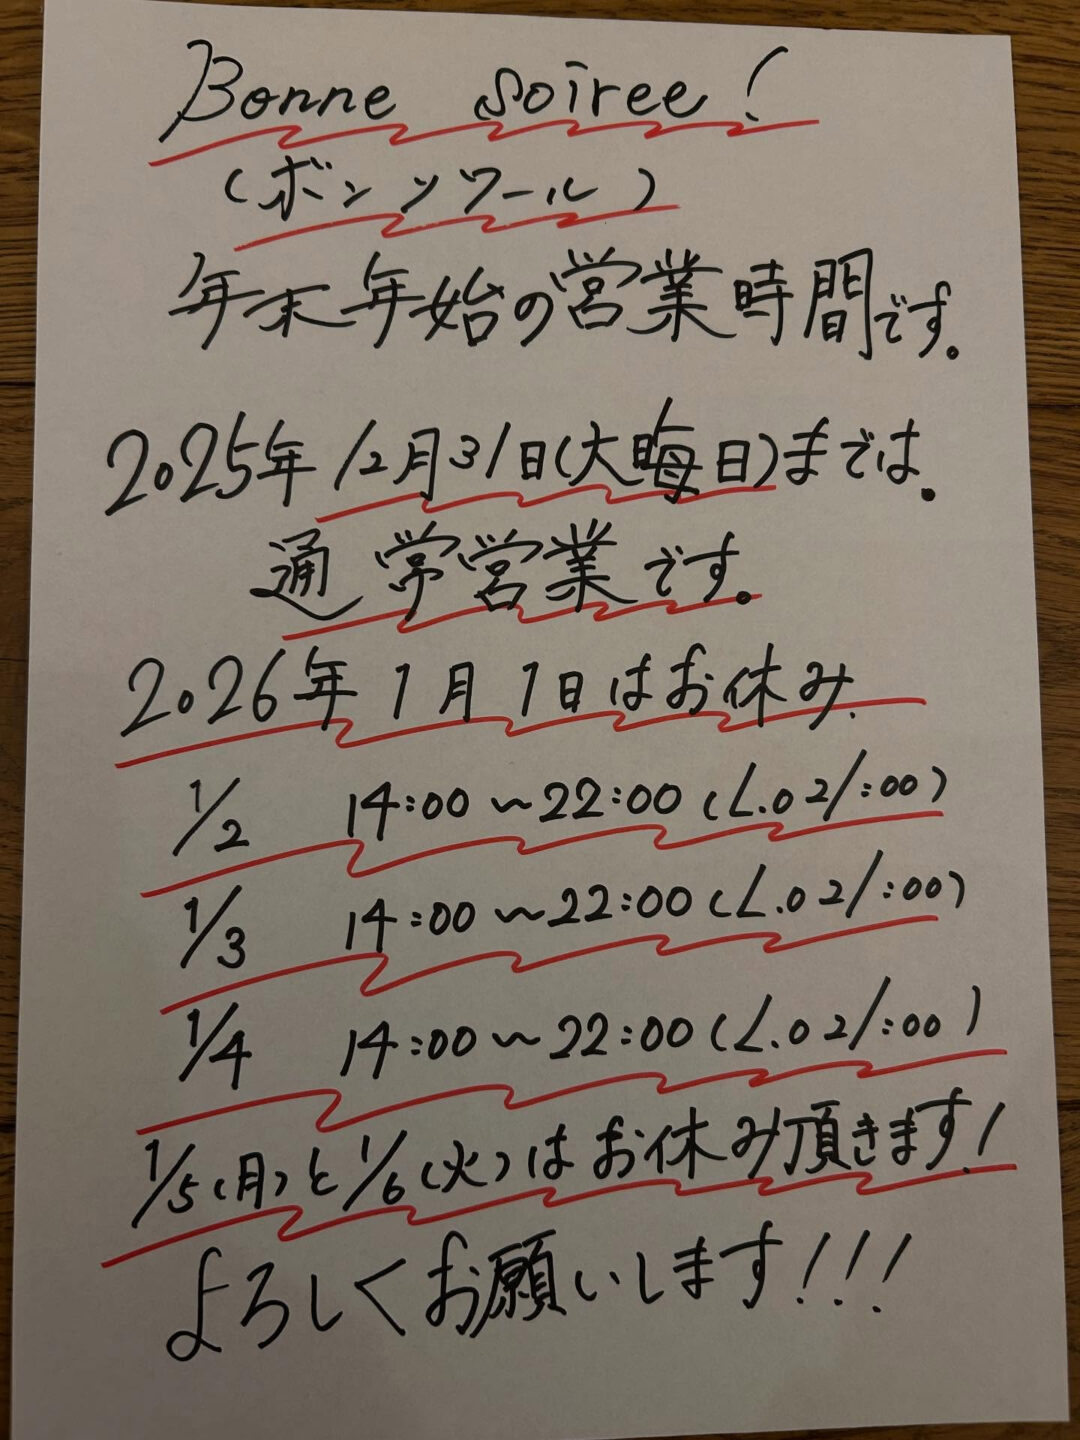 Bonne soiree!
(ボンソワール)
年末年始の営業時間です。
2025年12月31日(大晦日)までは.
通常営業です。
2026年1月1日はお休み.
1/2 14:00~22:00(L.O21:00)
1/3 14:00~22:00(L.O21:00)
1/4 14:00~22:00(L.O21:00)
1/5(月)と1/6(火)はお休み頂きます!
よろしくお願いします!!!